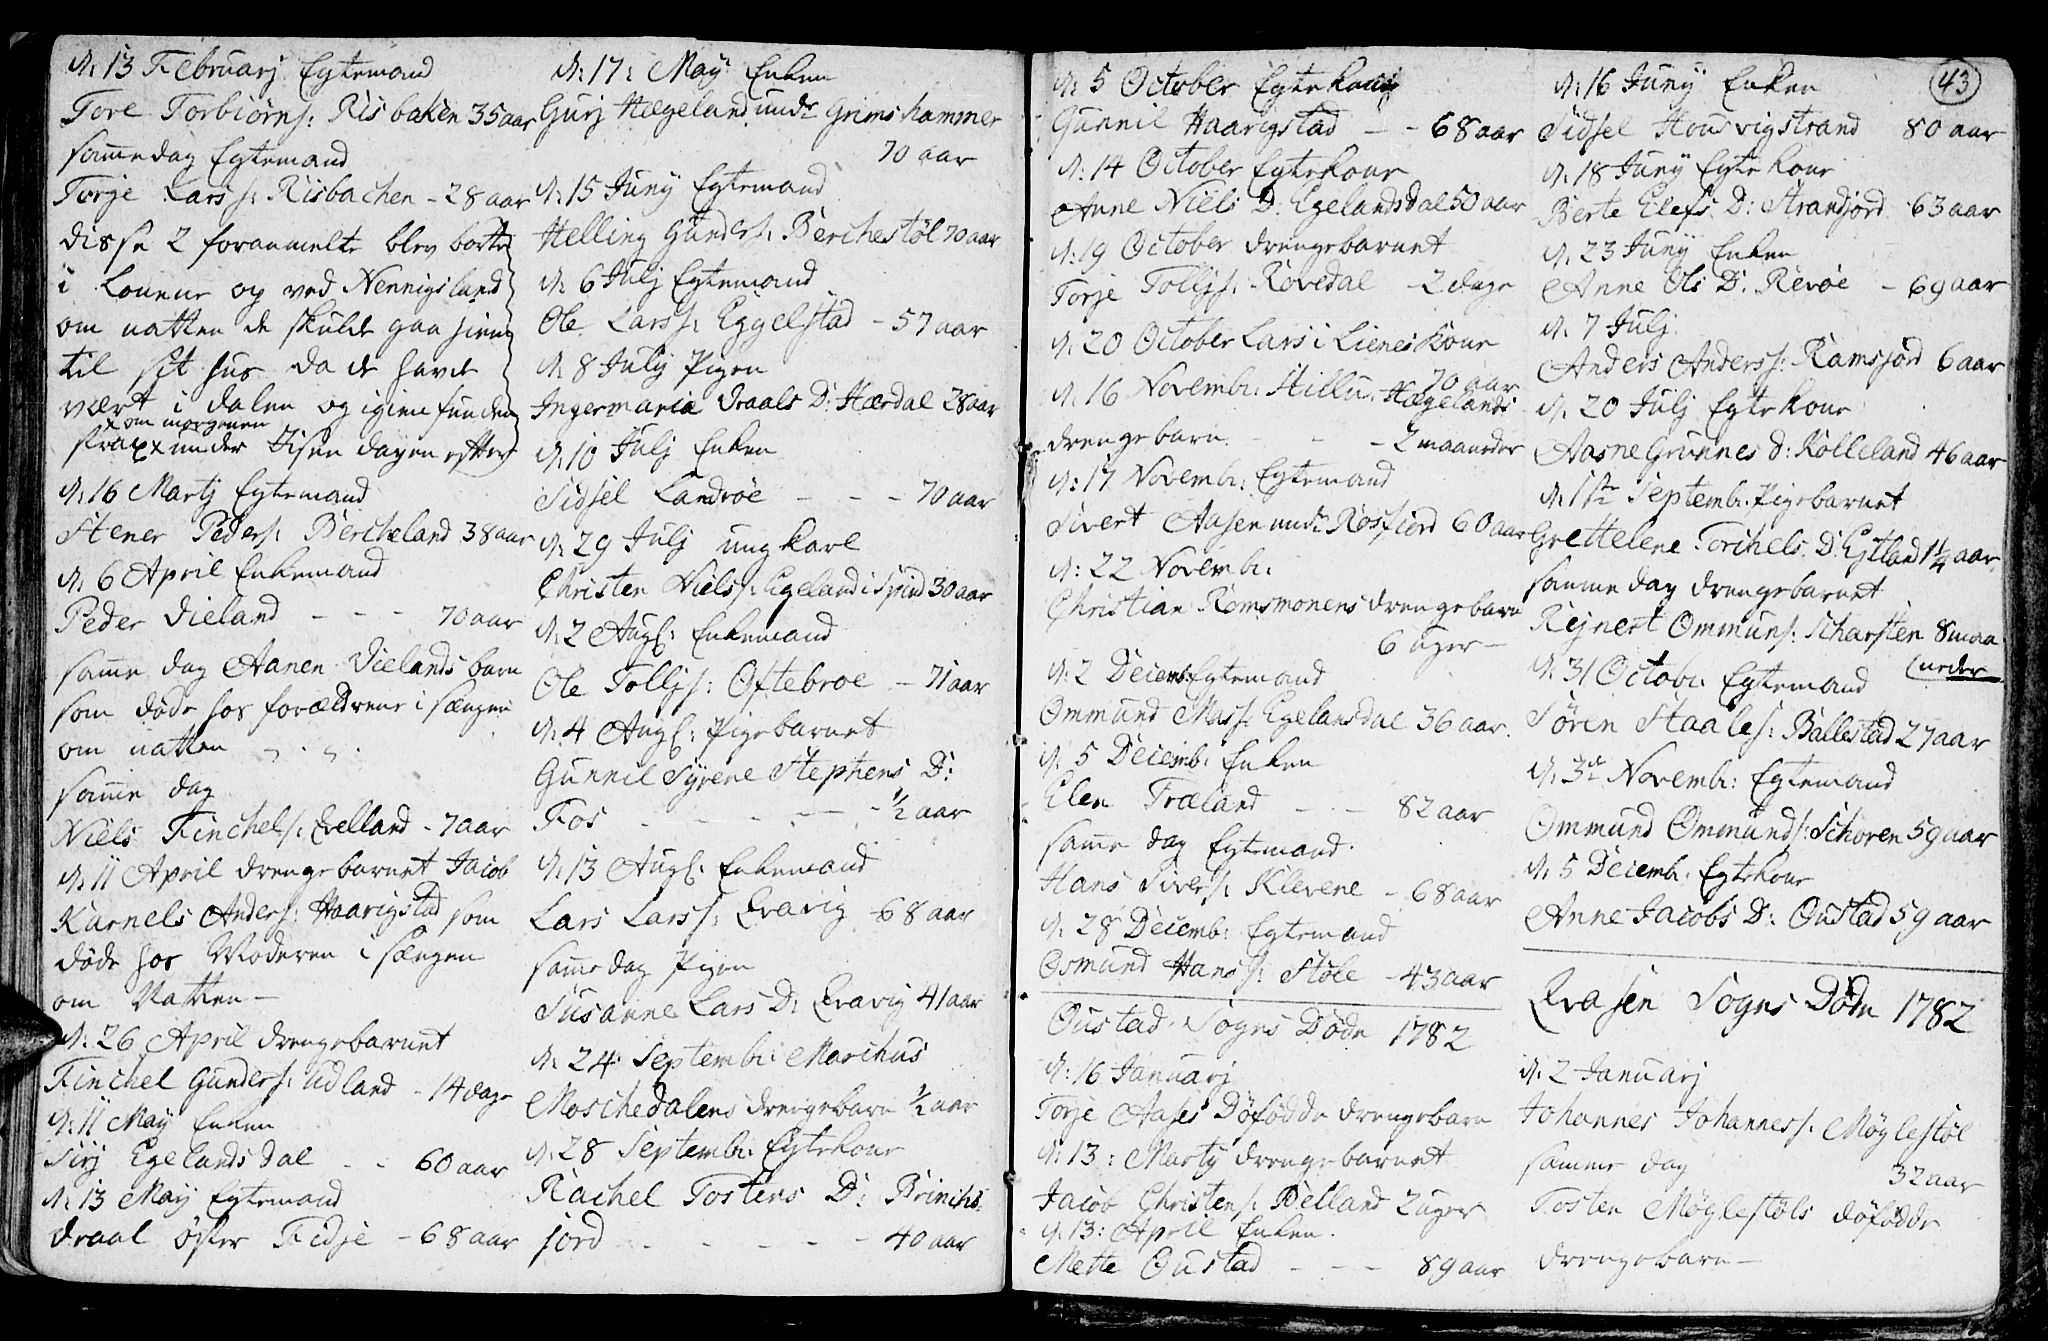 d: 13 Februarj Egtemand
Tore Torbiörns: Risbaken 35 aar
samme dag Egtemand
Torje Larss: Risbachen - 28 aar
disse 2 foranmelte blev borte
i Louene og ved Nennigsland
om natten de skulde gaa hiem
til sit hus da de havde
vært i dalen og igien funden
x om morgenen
strax x under Iisen dagen efter
d: 16 Martj Egtemand
Stener Peders: Bercheland 38 aar
d: 6 April Enkemand
Peder Dieland - - - 70 aar
samme dag Aanen Dielands barn
som døde hos forældrene i sængen
om natten
samme dag
Niels Tinchels: Evelland - 7 aar
d: 11 April drengebarnet Jacob
Karnels Anders: Haarigstad som
døde hos Moderen i sængen
om Natten -
d: 26 April drengebarnet
Tinchel Gunders: Udland - 14 dage
d: 11 May Enken
Sirj Egelandsdal - - 60 aar
d: 13 May Egtemand
Draal öster Fidje - 68 aar
d: 17: May Enken
Gurj Hægeland undr Grimshammer
70 aar
d: 15 Junÿ Egtemand
Helling Gunders: Berchestöl 70 aar
d: 6 Julj Egtemand
Ole Larss: Eggelstad - 57 aar
d: 8 July Pigen
Ingermaria Draals D: Hærdal 28 aar
d: 10 Julj Enken
Sidsel Landröe - - - 70 aar
d: 29 Julj ungkarl
Christen Niels: Egeland i Spind 30 aar
d: 2 Aug: Enkemand
Ole Tolljs: Oftebroe - 71 aar
d: 4 Aug: Pigebarnet
Gunnil Syrene Stephens D:
Fos - - - - - 1/2 aar
d: 13 Aug: Enkemand
Lars Larss: Eravig - 68 aar
samme dag Pigen
Susanne Lars D: Eravig 41 aar
d: 24 Septembr: Marchus
Moschedalens drengebarn 1/2 aar
d: 28 Septembr: Egtekone
Rachel Tostens D: Brinchs
jord - - - - - 40 aar
d: 5 October Egtekone
Gunnil Haarigstad - - 68 aar
d: 14 October Egtekone
Anne Niels D: Egelandsdal 50 aar
d: 19 October drengebarnet
Torje Tolljs: Rövedal - 2 dage
d: 20 October Lars i Lienes Kone
70 aar
d: 16 Novembr: Hægelands
drengebarn - - - 2 maaneder
d: 17 Novembr: Egtemand
Sivert Aasen undr Rosfiord 60 aar
d: 22 Novembr:
Christian Romsmonens drengebarn
6 uger -
d: 2 Decemb: Egtemand
Ommund Mass: Egelansdal 36 aar
d: 5 Decemb: Enken
Elen Træland - - 82 aar
samme dag Egtemand
Hans Sivers: Klevene - 68 aar
d: 28 Decemb: Egtemand
Osmund Hans: Stöle - 43 aar
Oustad Sogns Døde 1782
d: 16 Januarj
Torje Aases Døfødde drengebarn
d: 13: Martj drengebarnet
Jacob Christens: Belland 2 uger
d: 13: April Enken
Mette Oustad - - - 89 aar
43
d: 16 Junÿ Enken
Sidsel Housvigstrand 80 aar
d: 18 Junÿ Egtekone
Berte Elefs D: Strandjord 63 aar
d: 23 Junÿ Enken
Anne Ols D: Revöe - 69 aar
d: 7 Julj
Anders Anderss: Ramsjord 6 aar
d: 20 Julj Egtekone
Aasne Grunnes D: Kolleland 46 aar
d: 1ste Septembr: Pigebarnet
Grettelene Torchels D: Egtland 1 1/4 aar
samme dag drengebarnet
Rejnert Ommuns: Scharsten 8 maa
(neder
d: 31 Octobr: Egtemand
Sören Staales: Ballestad 27 aar
d: 3de Novembr: Egtemand
Ommund Ommunds: Schoren 59 aar
d: 5 Decemb: Egtekone
Anne Jacobs D: Oustad 59 aar
Qvasen Sogns Døde 1782
d: 2 Januarj
Johannes Johanness: Möglestöl
32 aar
samme dag
Tosten Möglestöls døfødde
drengebarn -